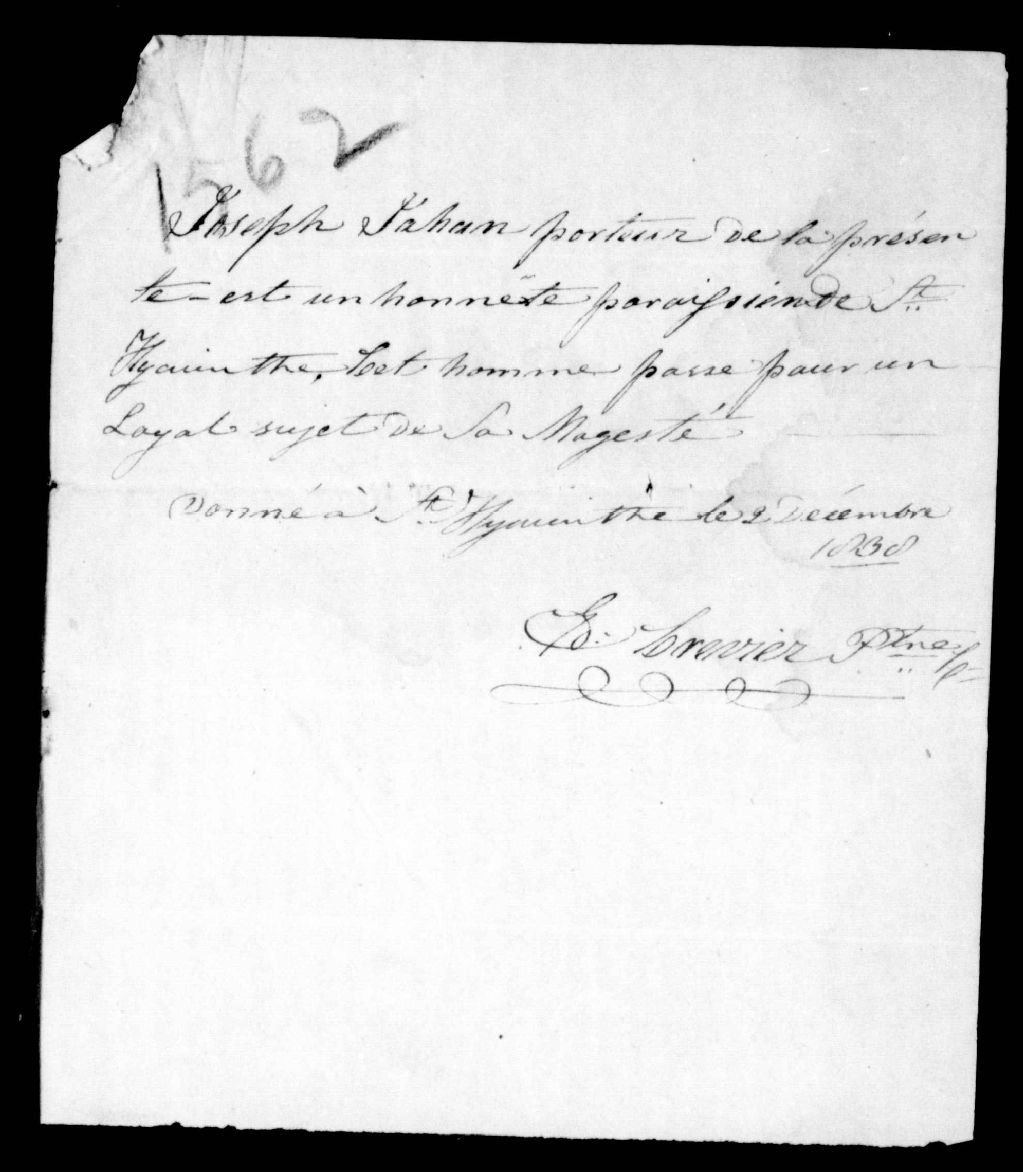 1562
Joseph Jahan porteur de la présen
te - est un honnête paroissien de St
Hyacinthe, Cet homme passe pour un
Loyal sujet de Sa Magesté
Donné à St. Hyacinthe le 2 Décembre
1838
Ed. Crevier Ptre